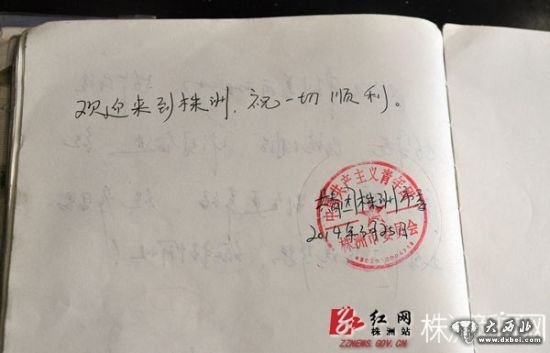 欢迎来到株洲，祝一切顺利。
共青团株洲市委
中国共产主义青年团
株洲市委员会
红网
株洲站
ZZNEWS.GOV.CN
大西北
www.dxbei.com